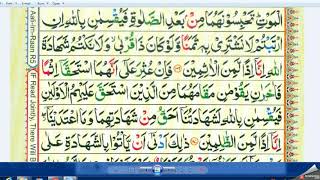 الْمَوْتِ تَحْبِسُوْنَهُمَا مِنْۢ بَعْدِ الصَّلٰوةِ فَيُقْسِمٰنِ بِاللّٰهِ اِنِ
ارْتَبْتُمْ لَا نَشْتَرِيْ بِهٖ ثَمَنًا وَّلَوْ كَانَ ذَا قُرْبٰى ۙ وَلَا نَكْتُمُ شَهَادَةَ
اللّٰهِ اِنَّاۤ اِذًا لَّمِنَ الْاٰثِمِيْنَ فَاِنْ عُثِرَ عَلٰۤى اَنَّهُمَا اسْتَحَقَّاۤ اِثْمًا
فَاٰخَرٰنِ يَقُوْمٰنِ مَقَامَهُمَا مِنَ الَّذِيْنَ اسْتَحَقَّ عَلَيْهِمُ الْاَوْلَيٰنِ
فَيُقْسِمٰنِ بِاللّٰهِ لَشَهَادَتُنَاۤ اَحَقُّ مِنْ شَهَادَتِهِمَا وَمَا اعْتَدَيْنَاۤ ۖ
اِنَّاۤ اِذًا لَّمِنَ الظّٰلِمِيْنَ ذٰلِكَ اَدْنٰۤى اَنْ يَّاْتُوْا بِالشَّهَادَةِ عَلٰى
Aali-im-Raan R5 (IF Read Jointly, There Will B